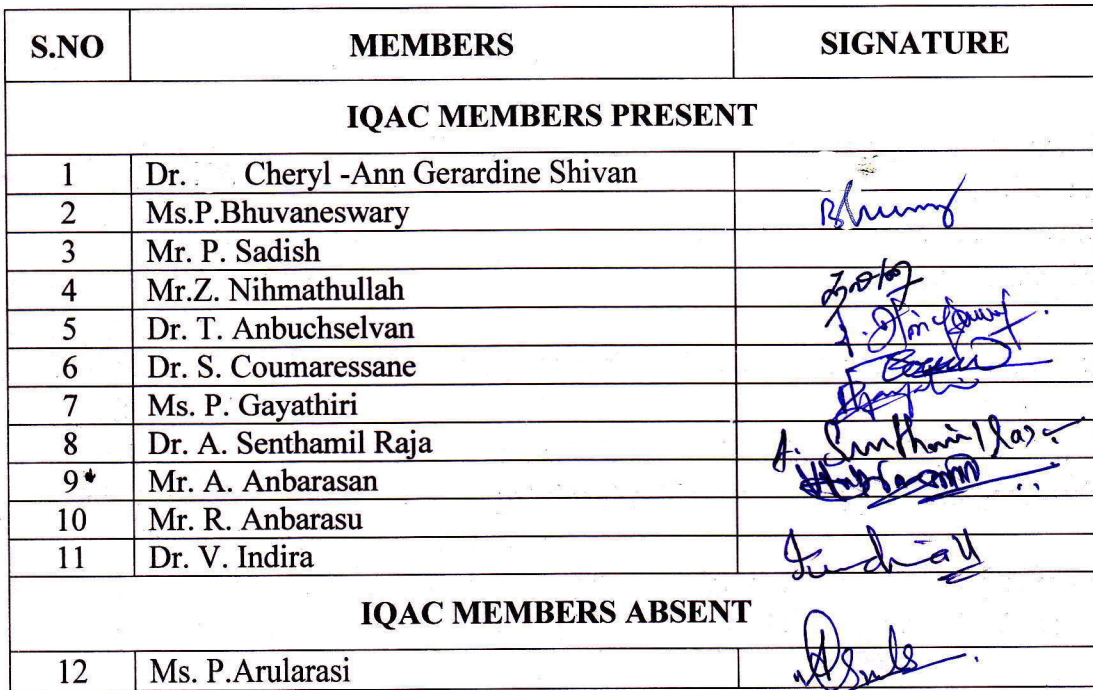 S.NO MEMBERS SIGNATURE
IQAC MEMBERS PRESENT
1 Dr. Cheryl -Ann Gerardine Shivan
2 Ms.P.Bhuvaneswary
3 Mr. P. Sadish
4 Mr.Z. Nihmathullah
5 Dr. T. Anbuchselvan
6 Dr. S. Coumaressane
7 Ms. P. Gayathiri
8 Dr. A. Senthamil Raja
9 Mr. A. Anbarasan
10 Mr. R. Anbarasu
11 Dr. V. Indira
IQAC MEMBERS ABSENT
12 Ms. P.Arularasi